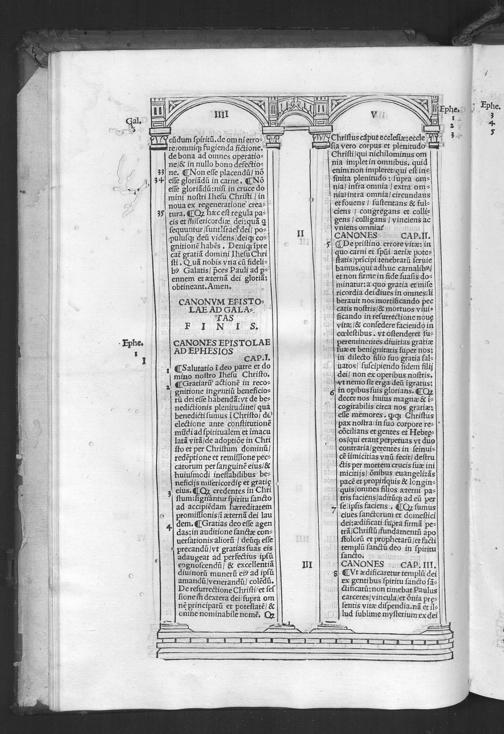 IIII
Gal.
eūdum spiritū, de omni erro-
re: omniq; fugienda fictione.
de bona ad omnes operatio-
ne: & in nullo bono defectio-
ne. ¶ Non esse placendū/ nō
33
esse gloriādū in carne. ¶ Nō
34
esse gloriādū: nisi in cruce do-
mini nostri Ihesu Christi / in
noua ex regeneratione crea-
tura. ¶ Qꝫ hæc est regula pa-
35
cis et misericordiæ dei: quā q
sequuntur / sunt Israel dei; po-
pulusq; deū videns, dei q; co-
gnitionē habēs. Deniq; pre-
cat' gratiā domini Ihesu Chri
sti. Qua nobis vna cū fidelibꝰ
Galatis / preces Pauli ad p-
ennem et æternā dei gloriā:
obtineant. Amen.
CANONVM EPISTO-
LAE AD GALA-
TAS
F I N I S.
Ephe.
1
CANONES EPISTOLAE
AD EPHESIOS
I
CAP. I.
¶ Salutatio / a deo patre et do
1
mino nostro Ihesu Christo.
¶ Gratiarū actionē in reco-
2
gnitione ingētiū beneficio-
rū dei esse habendā: vt de be-
nedictionis plenitudine / qua
benedicti sumus i Christo: de
electione ante constitutionē
mūdi ad spiritualem et immacu
latā vitā: de adoptiōe in Chri
sto et per Christum dominū:
redēptione et remissione pec-
catorum per sanguinē eius/ &
huiusmodi ineffabilibus be-
neficijs misericordiæ et gratiæ
eius. ¶ Qꝫ credentes in Chri
3
stum: signantur spiritu sancto
ad accipiedam hæreditatem
promissionis / æternā dei lau
dem. ¶ Gratias deo esse agen
4
das: in auditione sanctæ con-
uersationis aliorū / deūq; esse
precandū/ vt gratias suas eis
adaugeat ad perfectius ipsū
cognoscendū / & excellentiā
diuinorū munerū eiꝰ ad ipsū
amandū: venerandū / colēdū.
De resurrectione Christi / et ses
sione ad dextera dei: supra om
nē principatū et potestatē / &
omne nominabile nomē. Qꝫ
V
Ephe.
1
2
3
Christus caput ecclesiæ: eccle
sia vero corpus et plenitudo
Christi: qui nichilominus om
nia implet in omnibus. quid
enim non impleret: qui est infi
finita plenitudo: supra om-
nia / infra omnia / extra om-
nia/ intra omnia / circundans
et fouens / sustentans & ful-
ciens / congregans et colli-
gens / colligans / vinciens ac
vniens omnia?
II
CANONES CAP. II.
¶ De pristino errore vitæ: in
5
quo carni et spūi aeriæ pote-
statis / pricipi tenebrarū serui
bamus. qui adhuc carnalibꝰ /
et non firme in fide suasis do
minatur: a quo gratia et mise
ricordia dei diues in omnes / li
berauit nos mortificando pec
catis nostris / & mortuos viui-
ficando in resurrectione nouæ
vitæ: & consedere faciendo in
cœlestibus. vt ostenderet su-
pereminentes diuitias gratiæ
suæ et benignitatis super nos:
in dilecto filio suo gratia sal-
uatos / suscipiendo fidem filij
dei / non ex operibus nostris.
vt nemo sit erga deū ígratus:
in opibus suis glorians. ¶ Qꝫ
6
decet nos huius magnæ & i-
cogitabilis circa nos gratiæ:
esse mēmores. qꝫ Christus
pax nostra in suo corpore re-
cōcilians et gentes et Hebræ-
os / qui erant perpetuus vt duo
contraria / gerentes in seinui-
cē inimicitias vnū fecit / destru
ctis per mortem crucis suæ ini
micitijs / ōnibus euangelizās
pacē et propinquis & longin-
quis / omnes filios æterni pa-
tris faciens / aditūq; ad eū per
se ipsis faciens. ¶ Qꝫ sumus
7
ciues sanctorum et domestici
dei: ædificati supra firmā pe-
trā / Christū / fundamentū apo
stolorū et prophetarū / et facti
templū sanctū deo in spiritu
sancto.
III
CANONES CAP. III.
¶ Vt ædificaretur templū dei
8
ex gentibus spiritu sancto sā-
ctificatū: non timebat Paulus
carceres / vincula / et ōnia pre-
sentis vitæ dispendia. nā et il-
lud sublime mysterium ex dei
Ephe.
3
4
5